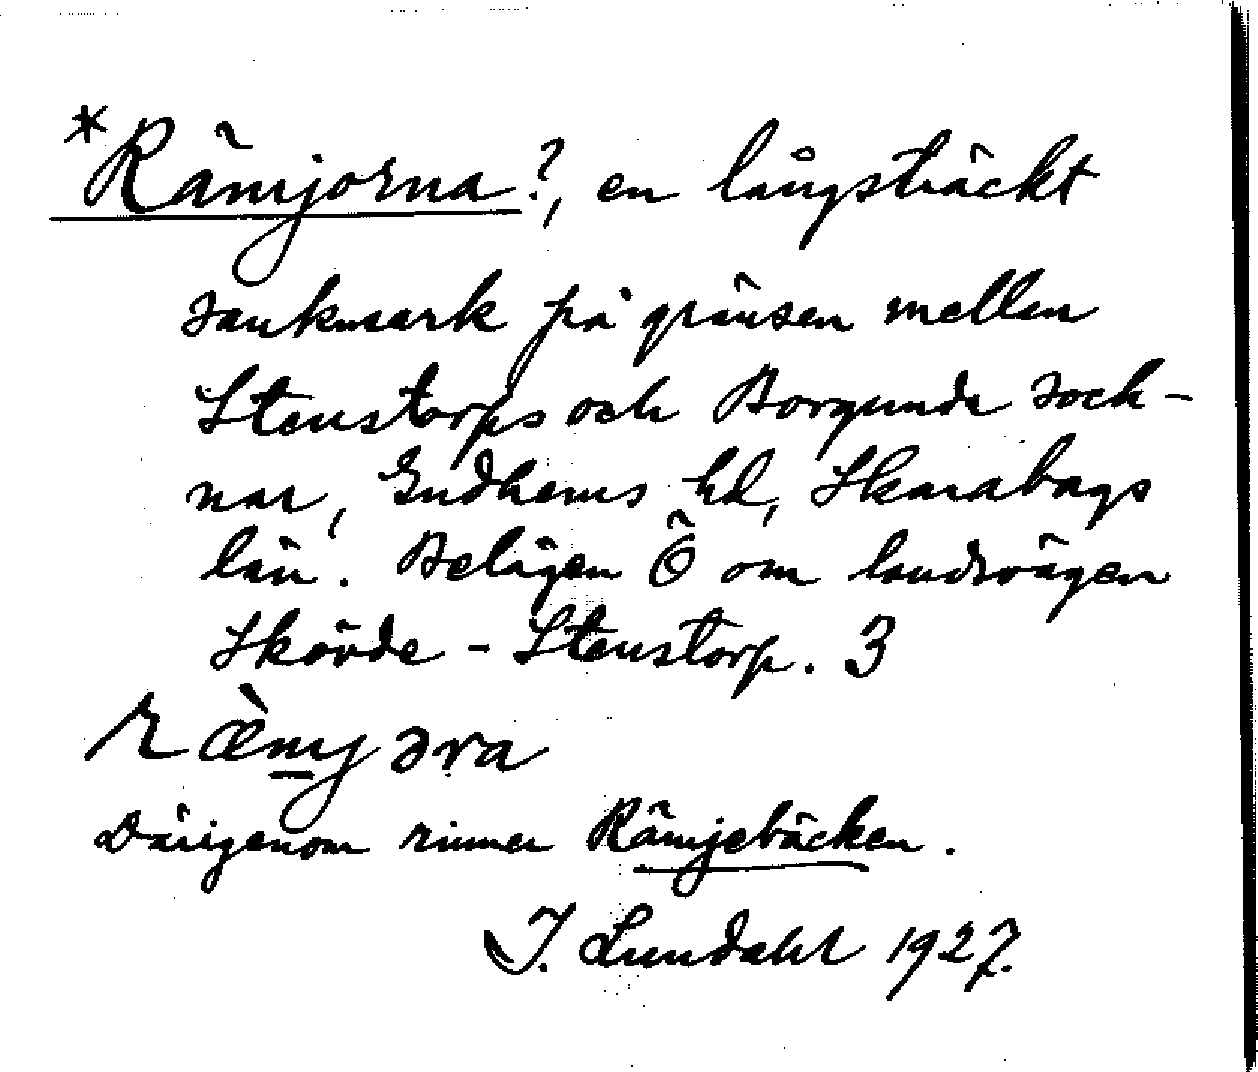 *Rämjorna?, en långsträckt
sankmark på gränsen mellan
Stenstorps och Borgunda sock-
nar, Gudhems hd, Skarabogs
län. Belägen Ö om landsvägen
Skövde - Stenstorp. 3
ræ̀mjəra
Därigenom rinner Rämjebäcken.
I. Lundahl 1927.